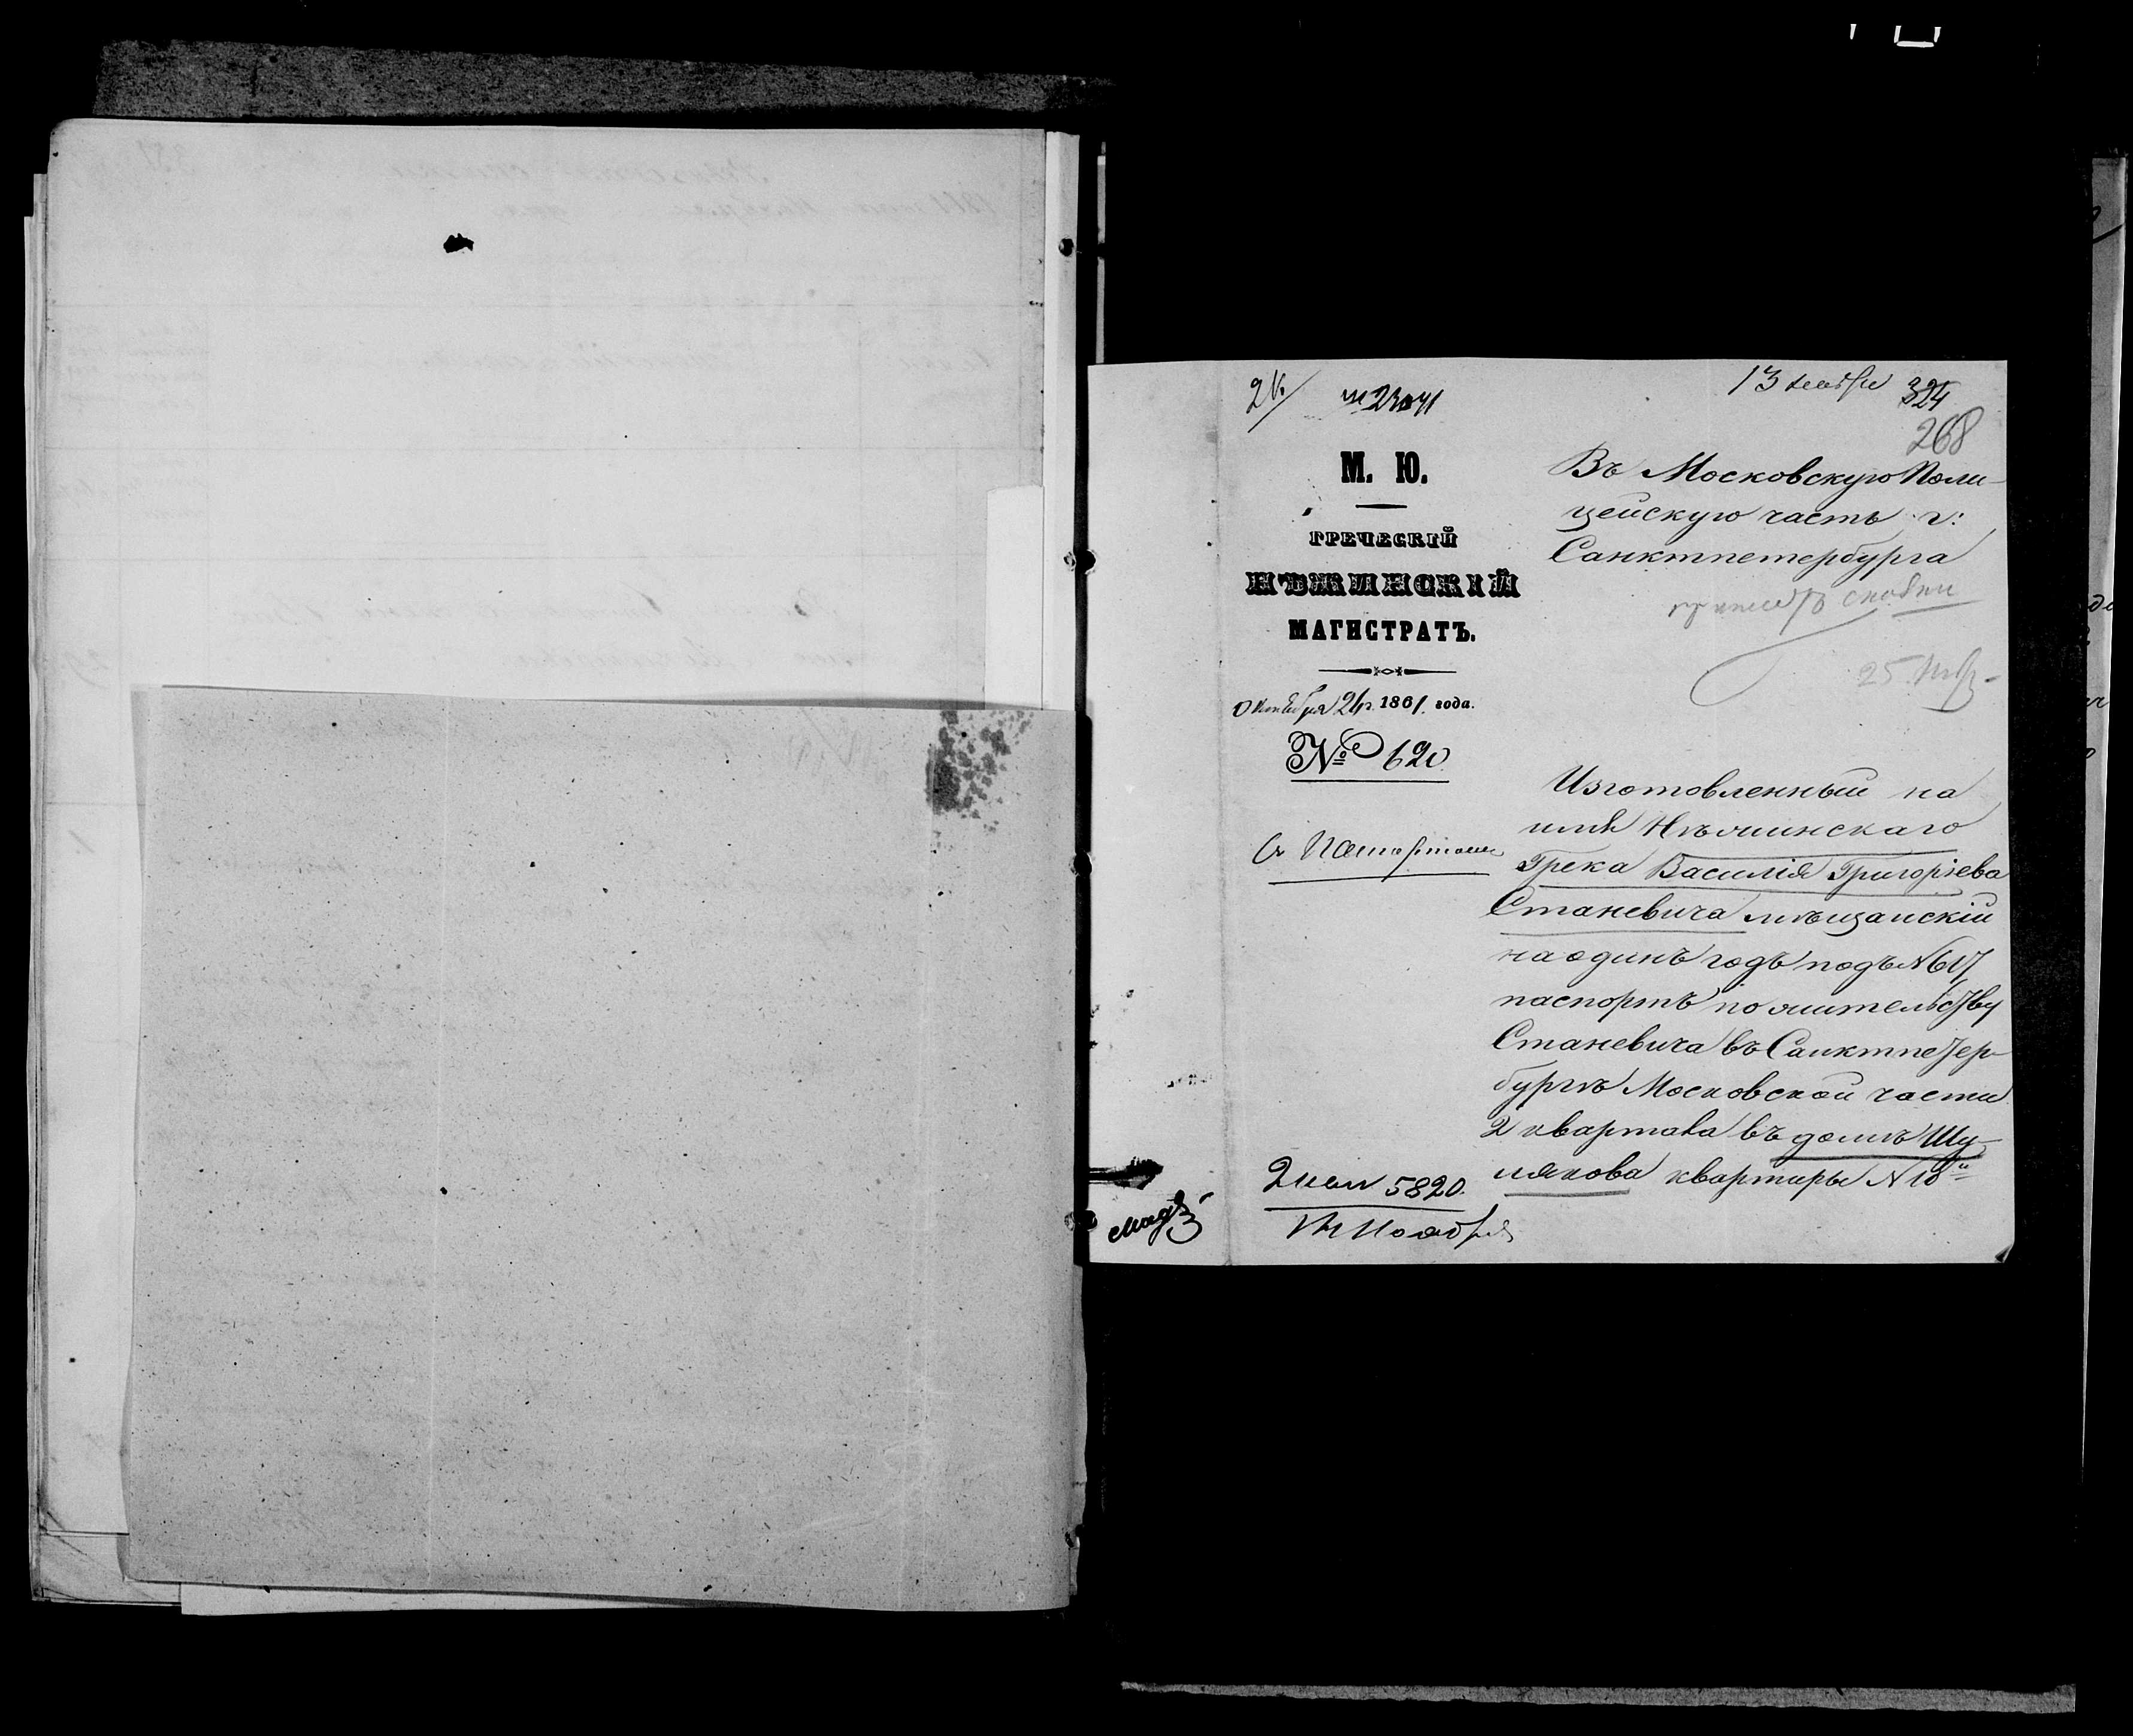 2К/
№ 23041
13 ноября
324
268
М. Ю.
ГРЕЧЕСКІЙ
НѢЖИНСКІЙ
МАГИСТРАТЪ.
Октября 24 1861. года.
№ 620
Съ Паспортомъ
Въ Московскую Поли-
цейскую часть г:
Санктпетербурга
25
Изготовленный на
имя Нѣжинскаго
Грека Василія Григоріева
Станевича мѣщанскій
на одинъ годъ подъ № 617
паспортъ по жительству
Станевича въ Санктпетер-
бургѣ Московской части
2 квартала въ домѣ Шу-
лякова квартиры № 10й
2 кварт 5820.
Ноября